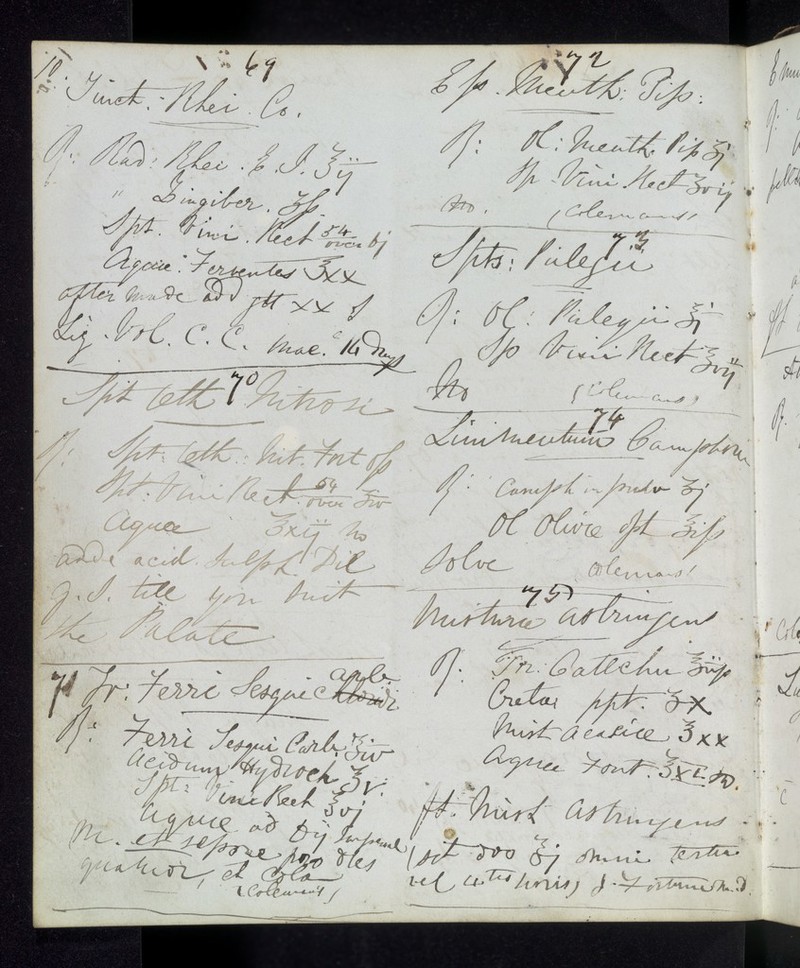 10.
69
Tinct. Rhei. Co.
R: Rad: Rhei. E. I. ℥ij
" Zingiber. ℥ß
Spt. Vini. Rect 54 over
Aquae. Ferventes ℥xx
after made add gtt xx of
Liq. Vol. C. C. Mac. 14 days
70
Spt Æth Nitrosi
R: Spt: Æth: Nit. Fort
Spt: Vini Rect. 54 over
Aquae ℥xij
adde acid. Sulph. Dil
q. S. till you suit
the Palate
71 Tr. Ferri Sesqui Carb.
R: Ferri Sesqui Carb. ℥iv
Acidum Hydroch ℥v.
Spt: Vini Rect ℥vj
Aquae ad Imperial
M. et sepone pro dies
quatuor, et Cola
(Coleman's)
72
Ess. Menth: Pip:
R: Ol: Menth Pip ℥j
Sp. Vini. Rect ℥vij
(Colemans)
73
Spts: Pulegii
R: Ol: Pulegii ℥j
Sp Vini Rect ℥vij
(Colemans)
74
Linimentum Camphorae
R: Camph in pulv ℥j
Ol Olivae opt
Solve Colemans
75
Misturae Astringens
R: Tr: Cattchu
Cretae ppt. ℥x
Mist Acaciae ℥xx
Aquae Font. ℥xl.
ft. Mist Astringens
omni tertia
vel horis) J. Fortune M.D.